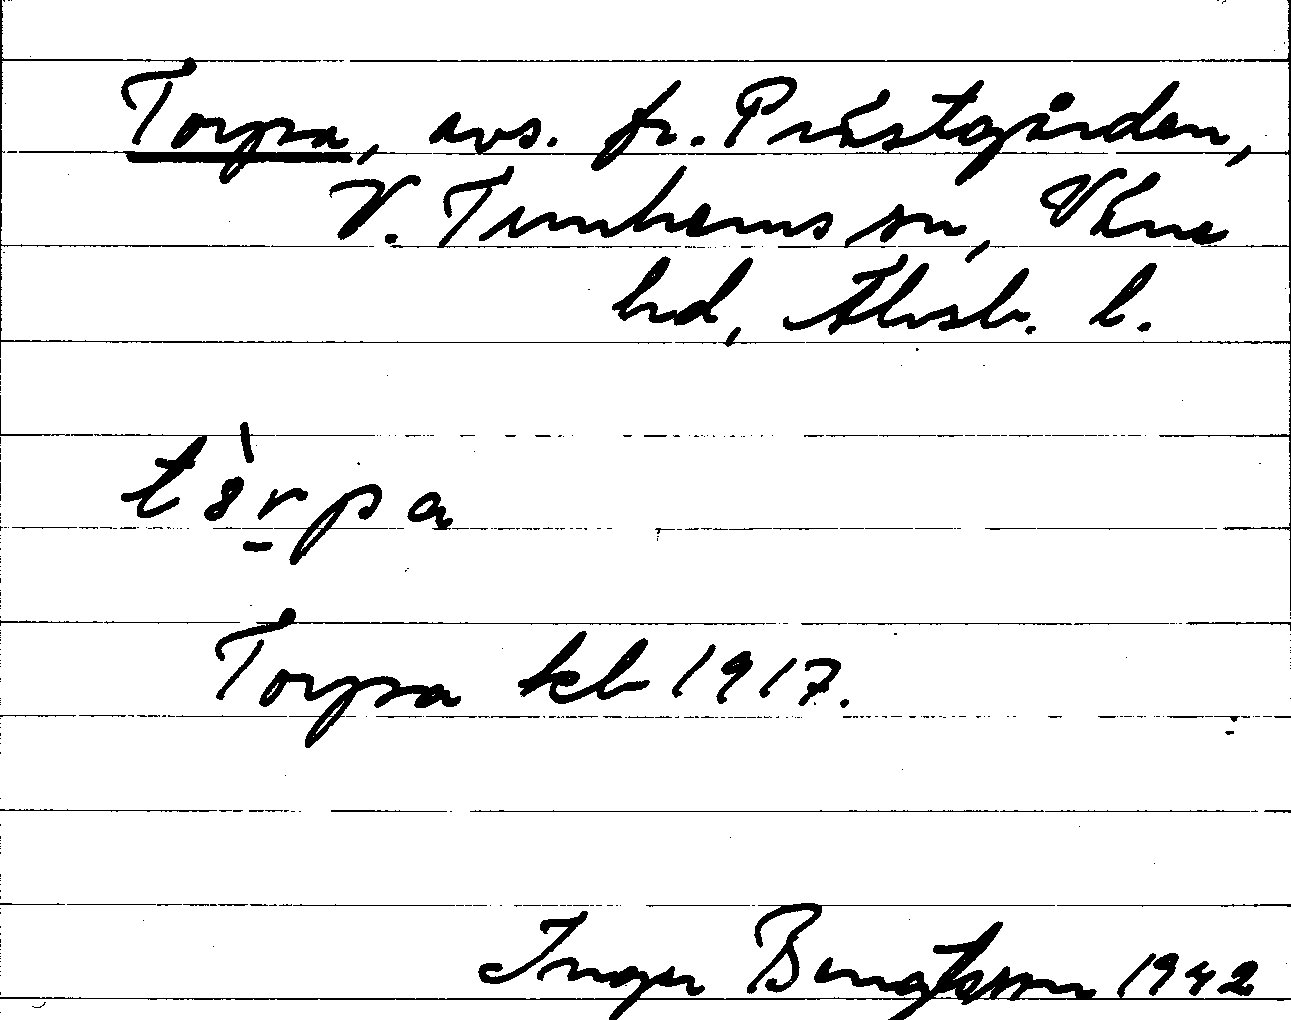 Torpa, avs. fr. Prästgården,
V. Tunhems sn, Väne
hd, Älvsb. l.
tòrpa
Torpa kb 1917.
Inger Bengtsson 1942